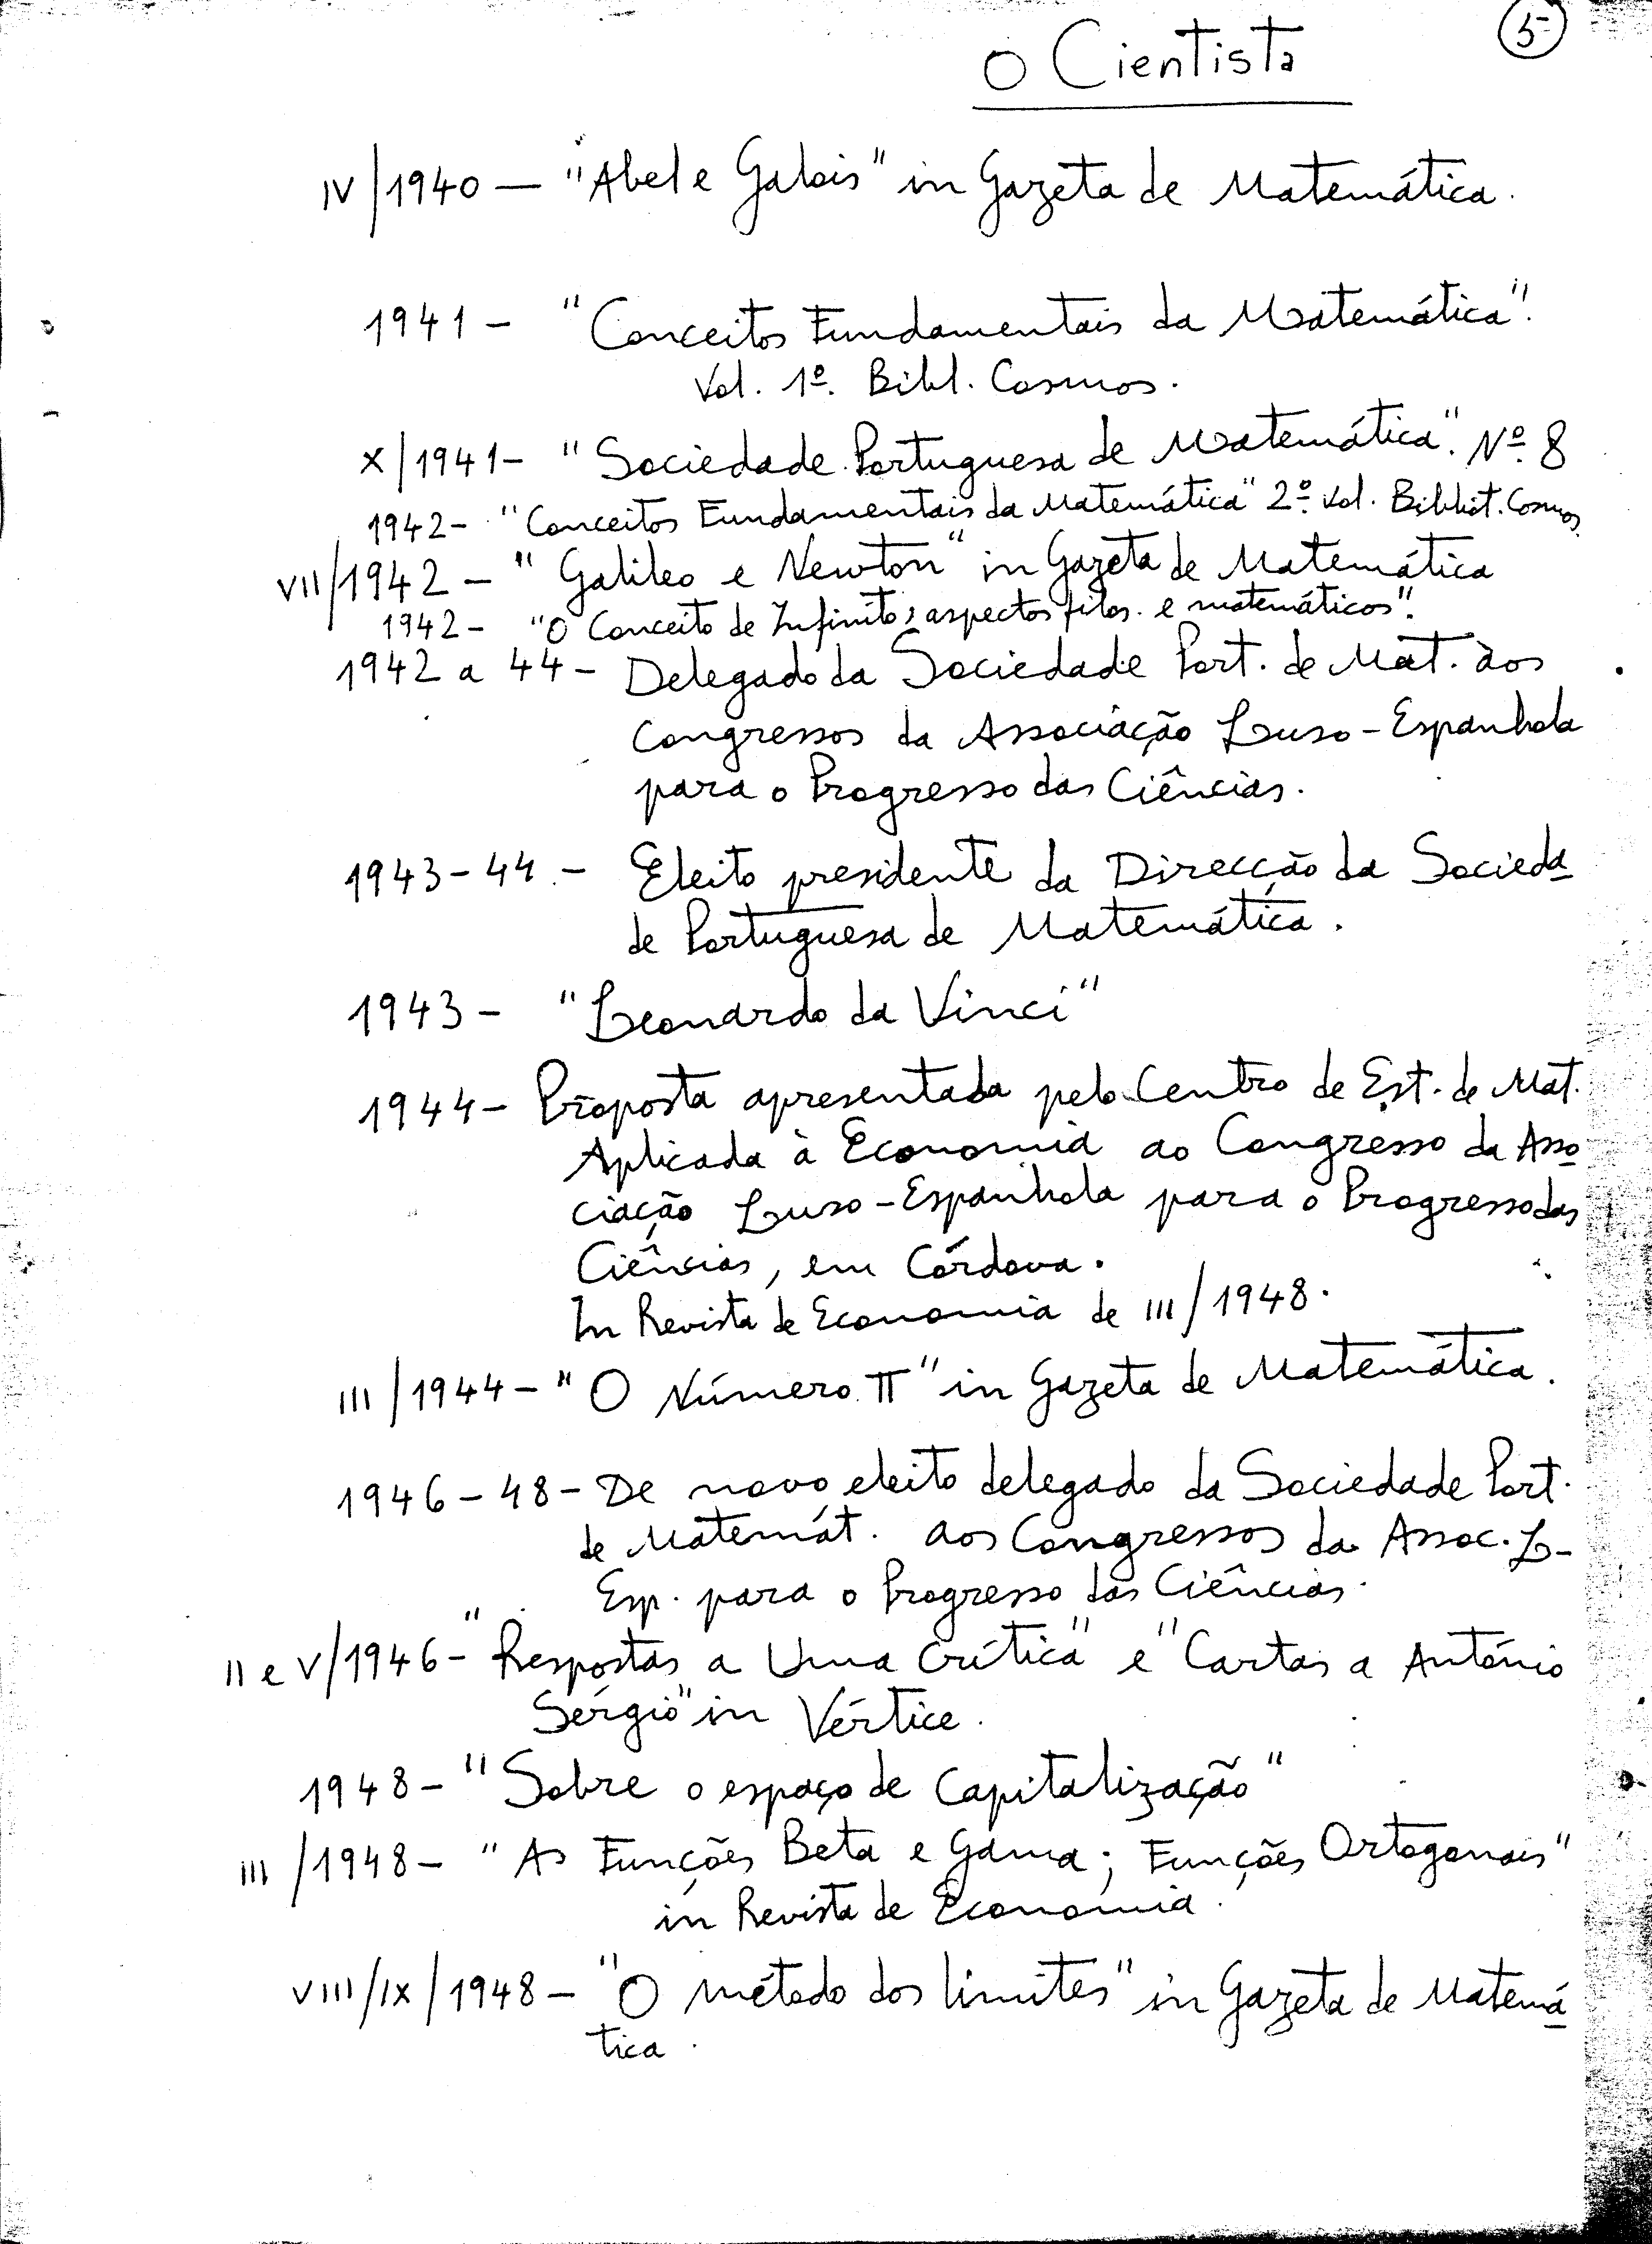 O Cientista
5-
IV/1940 — "Abel e Galois" in Gazeta de Matemática.
1941 - "Conceitos Fundamentais da Matemática".
Vol. 1º. Bibl. Cosmos.
X/1941 - "Sociedade Portuguesa de Matemática". Nº 8
1942 - "Conceitos Fundamentais da Matemática" 2º Vol. Bibliot. Cosmos.
VII/1942 - "Galileo e Newton" in Gazeta de Matemática
1942 - "O Conceito de Infinito; aspectos filos. e matemáticos".
1942 a 44 - Delegado da Sociedade Port. de Mat. aos
Congressos da Associação Luso-Espanhola
para o Progresso das Ciências.
1943-44 - Eleito presidente da Direcção da Socieda
de Portuguesa de Matemática.
1943 - "Leonardo da Vinci"
1944 - Proposta apresentada pelo Centro de Est. de Mat.
Aplicada à Economia ao Congresso da Asso
ciação Luso-Espanhola para o Progresso das
Ciências, em Córdova.
In Revista de Economia de III/1948.
III/1944 - "O Número π" in Gazeta de Matemática.
1946-48 - De novo eleito delegado da Sociedade Port.
de Matemát. aos Congressos da Assoc. L-
Esp. para o Progresso das Ciências.
II e V/1946 - "Respostas a Uma Crítica" e "Cartas a António
Sérgio" in Vértice.
1948 - "Sobre o espaço de Capitalização"
III/1948 - "As Funções Beta e Gama; Funções Ortogonais"
in Revista de Economia.
VIII/IX/1948 - "O método dos limites" in Gazeta de Matemá
tica.